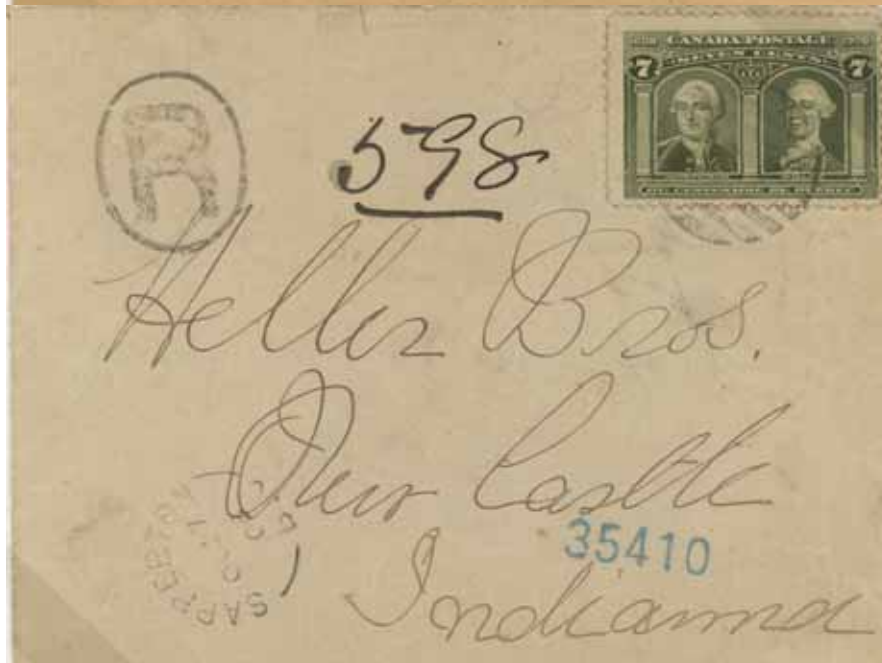 R
598
CANADA POSTAGE
SEVEN CENTS
7 7
Heller Bros.
New Castle
35410
Indianna
SAPPERTON